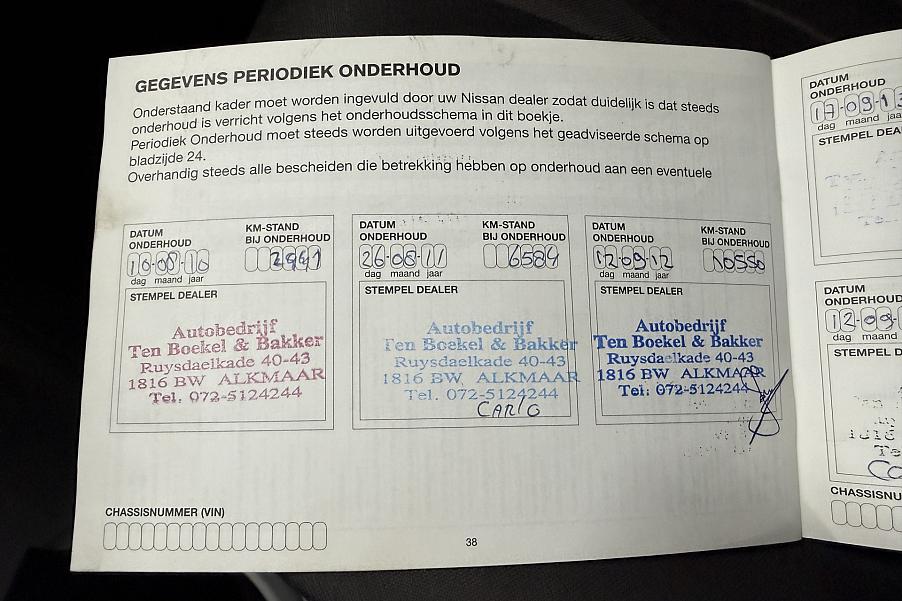 GEGEVENS PERIODIEK ONDERHOUD
Onderstaand kader moet worden ingevuld door uw Nissan dealer zodat duidelijk is dat steeds
onderhoud is verricht volgens het onderhoudsschema in dit boekje.
Periodiek Onderhoud moet steeds worden uitgevoerd volgens het geadviseerde schema op
bladzijde 24.
Overhandig steeds alle bescheiden die betrekking hebben op onderhoud aan een eventuele
DATUM ONDERHOUD
10-08-10
dag maand jaar
KM-STAND BIJ ONDERHOUD
2991
STEMPEL DEALER
Autobedrijf
Ten Boekel & Bakker
Ruysdaelkade 40-43
1816 BW ALKMAAR
Tel. 072-5124244
DATUM ONDERHOUD
26-08-11
dag maand jaar
KM-STAND BIJ ONDERHOUD
6584
STEMPEL DEALER
Autobedrijf
Ten Boekel & Bakker
Ruysdaelkade 40-43
1816 BW ALKMAAR
Tel. 072-5124244
CARLO
DATUM ONDERHOUD
12-09-12
dag maand jaar
KM-STAND BIJ ONDERHOUD
10550
STEMPEL DEALER
Autobedrijf
Ten Boekel & Bakker
Ruysdaelkade 40-43
1816 BW ALKMAAR
Tel: 072-5124244
CHASSISNUMMER (VIN)
38
DATUM
ONDERHOUD
17-09-13
dag maand jaar
STEMPEL DEA
DATUM
ONDERHOUD
12-09-
dag maand
STEMPEL D
CHASSISNU